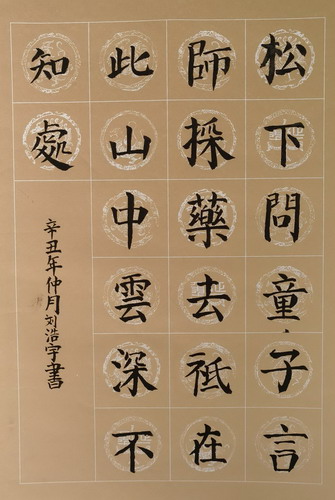 松下問童子言
師採藥去祗在
此山中雲深不
知處
辛丑年仲月刘浩宇書